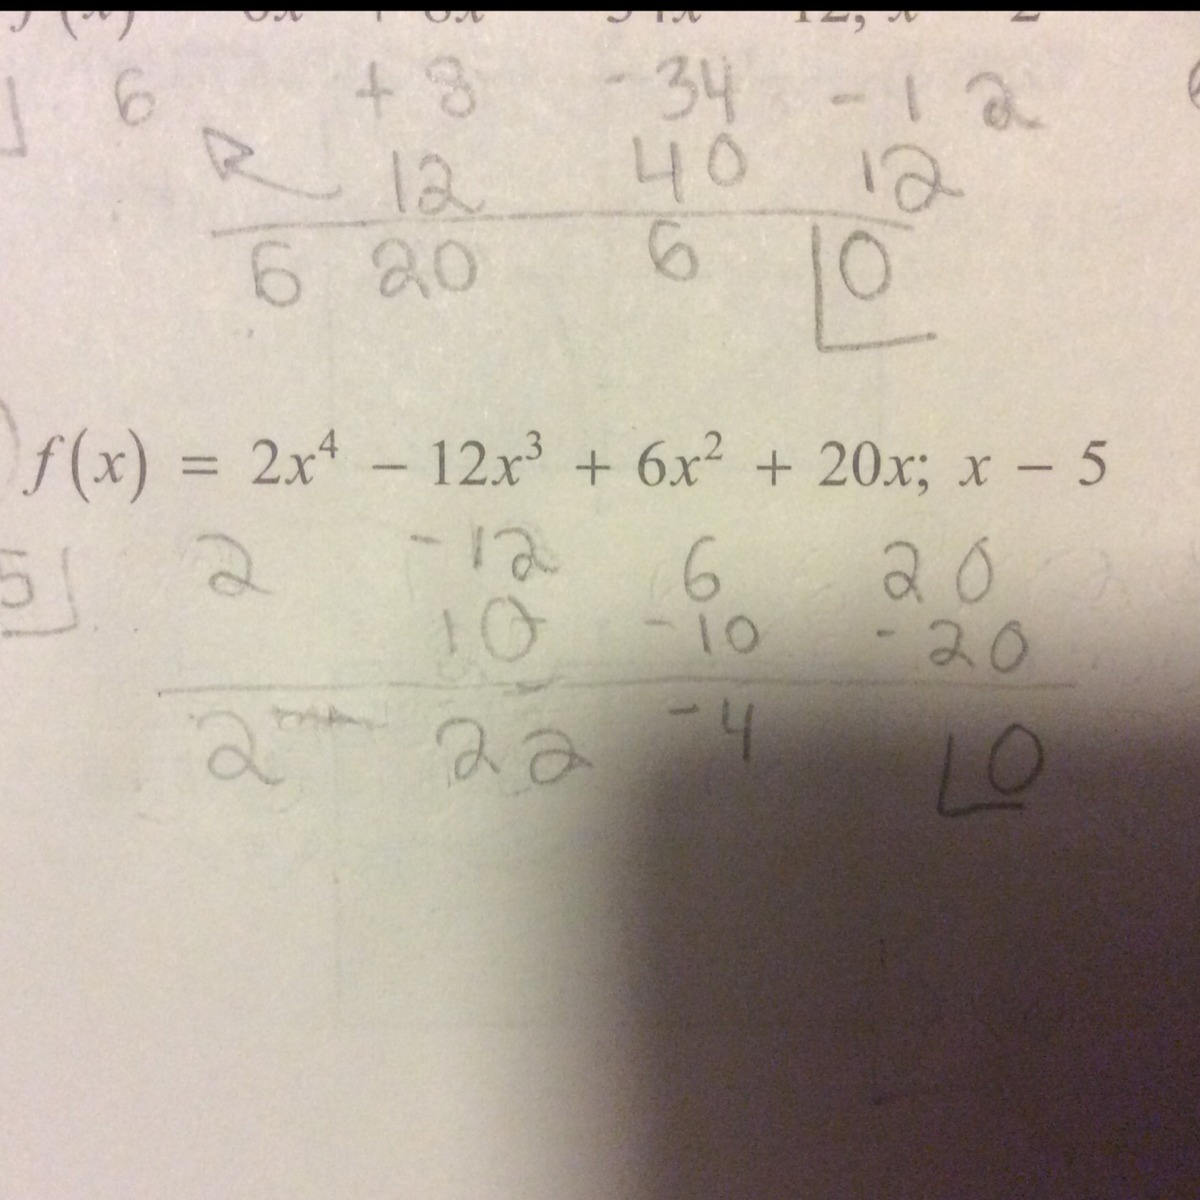 6 +8 -34 -12
12 40 12
6 20 6 0
f(x) = 2x⁴ − 12x³ + 6x² + 20x; x − 5
5 2 -12 6 20
10 -10 -20
2 22 -4 0